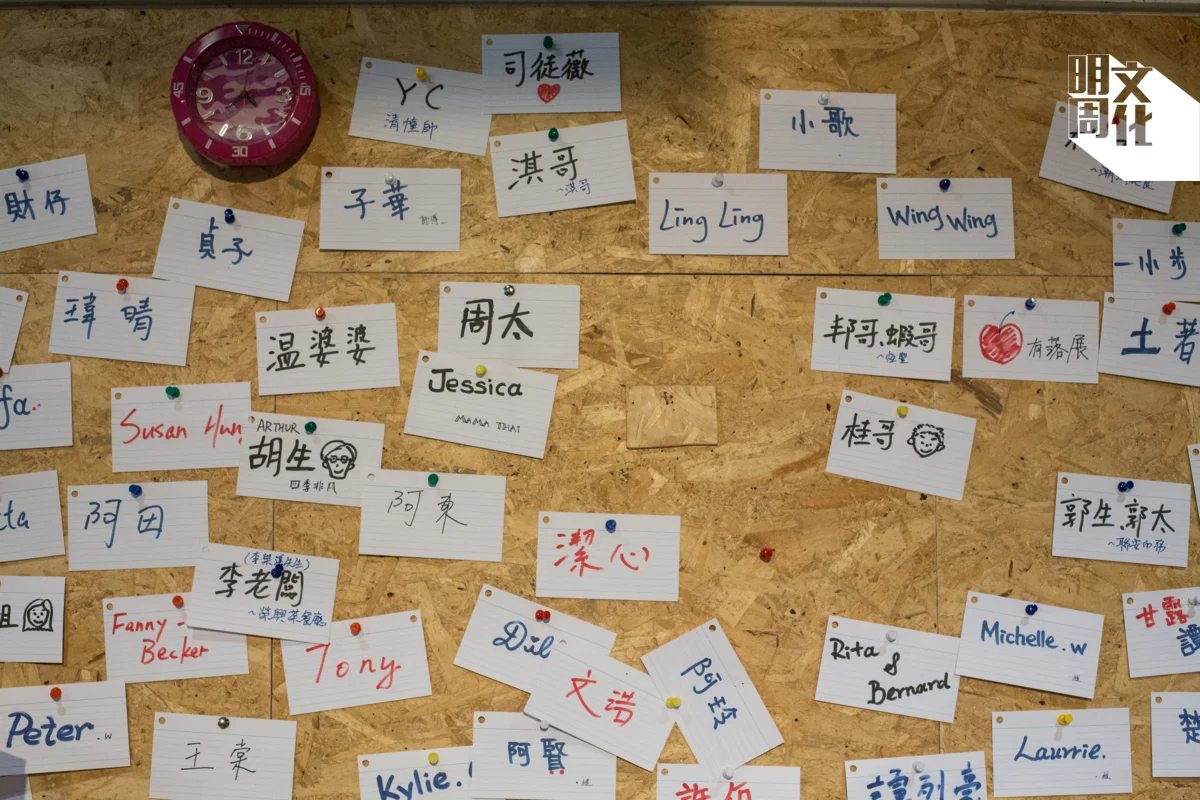 12
15
3
6
30
9
45
YC
清潔師
司徒薇
小歌
明周文化
財仔
貞子
子華
淇哥
~淇哥
Ling Ling
Wing Wing
一小步
瑋晴
温婆婆
周太
邦哥.蝦哥
有落展
土著
fa..
Susan Hun
ARTHUR
胡生
四季非凡
Jessica
MAMA THAI
桂哥
ta
阿田
阿東
潔心
郭生.郭太
姐
Fanny
Becker
李老闆
~榮興茶餐廳
Tony
Dil
文浩
阿玲
Rita
&
Bernard
Michelle.w
甘露
Peter.w
王棠
Kylie.
阿賢
Laurrie.